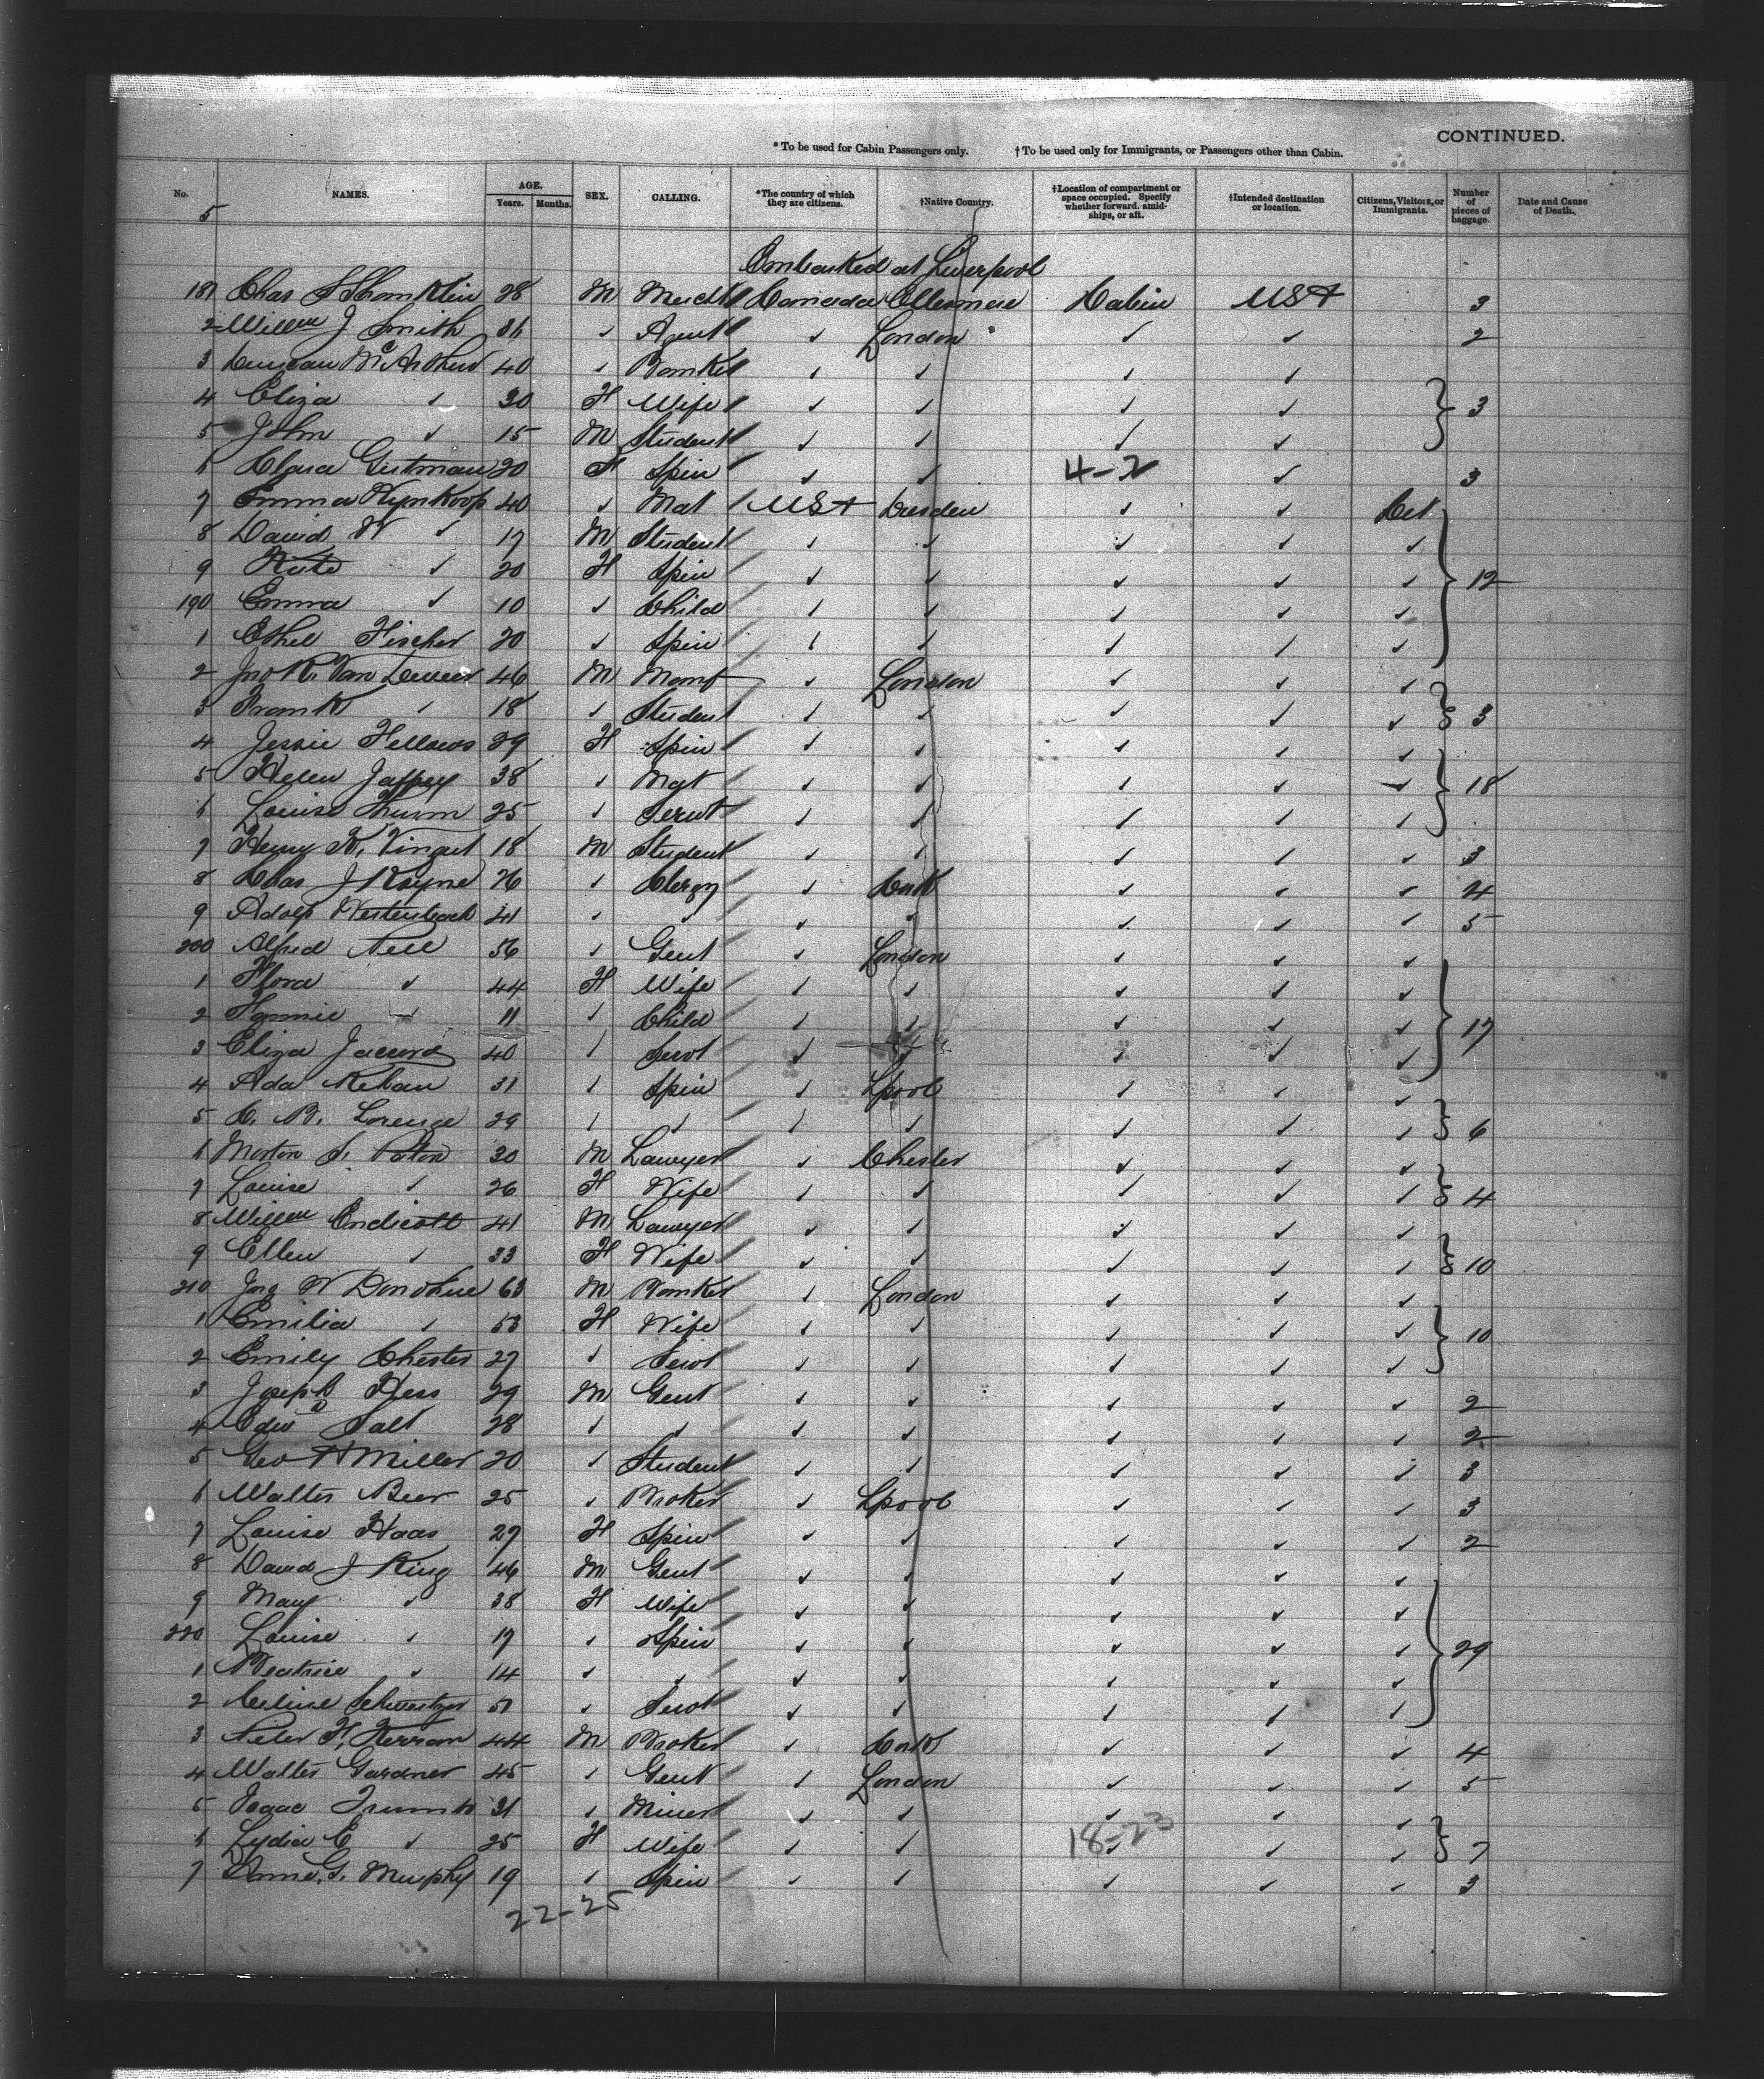 CONTINUED.
* To be used for Cabin Passengers only. † To be used only for Immigrants, or Passengers other than Cabin.
No. NAMES. AGE. Years. Months. SEX. CALLING. *The country of which they are citizens. †Native Country. †Location of compartment or space occupied. Specify whether forward, amidships, or aft. †Intended destination or location. Citizens, Visitors, or Immigrants. Number of pieces of baggage. Date and Cause of Death.
5
Embarked at Liverpool
181 Chas 28 M Mercht Canada Ellesmere Cabin USA 3
2 Willm J Smith Agent ✓ London ✓ ✓ 2
3 Duncan McArthur 40 ✓ Banker ✓ ✓ ✓ ✓
4 Eliza ✓ 30 F Wife ✓ ✓ ✓ ✓ 3
5 John ✓ 15 M Student ✓ ✓ ✓ ✓
6 Clara Gutman 20 F Spin ✓ ✓ 4-2 ✓ 3
7 Emma Wynkoop 40 ✓ Mat USA Dresden ✓ ✓ Cit
8 David W ✓ 17 M Student ✓ ✓ ✓ ✓ ✓
9 Kate ✓ 20 F Spin ✓ ✓ ✓ ✓ ✓ 12
190 Emma ✓ 10 ✓ Child ✓ ✓ ✓ ✓ ✓
1 Ethel Fischer 20 ✓ Spin ✓ ✓ ✓ ✓ ✓
2 Jno R. Van 46 M Manf ✓ London ✓ ✓ ✓
3 Frank ✓ 18 ✓ Student ✓ ✓ ✓ ✓ ✓ 3
4 Jessie Fellows 29 F Spin ✓ ✓ ✓ ✓ ✓
5 Helen Jaffray 38 ✓ Mat ✓ ✓ ✓ ✓ ✓ 18
6 Louise Thurm 25 ✓ Servt ✓ ✓ ✓ ✓ ✓
7 Henry K. Vingut 18 M Student ✓ ✓ ✓ ✓ ✓ 3
8 Chas J Kayne 26 ✓ Clergy ✓ Cork ✓ ✓ ✓ 4
9 Adolf 41 ✓ ✓ ✓ ✓ ✓ ✓ ✓ 5
200 Alfred Nell 56 ✓ Gent ✓ London ✓ ✓ ✓
1 Flora ✓ 44 F Wife ✓ ✓ ✓ ✓ ✓
2 Fannie ✓ 11 ✓ Child ✓ ✓ ✓ ✓ ✓ 17
3 Eliza Jaccard 40 ✓ Servt ✓ ✓ ✓ ✓ ✓
4 Ada Rehan 31 ✓ Spin ✓ Lpool ✓ ✓ ✓
5 C. B. Lorenze 29 ✓ ✓ ✓ ✓ ✓ ✓ ✓ 6
6 Morton S. Paton 30 M Lawyer ✓ Chester ✓ ✓ ✓
7 Louise ✓ 26 F Wife ✓ ✓ ✓ ✓ ✓ 4
8 Willm Endicott 41 M Lawyer ✓ ✓ ✓ ✓ ✓
9 Ellen ✓ 33 F Wife ✓ ✓ ✓ ✓ ✓ 10
210 W Donohue 63 M Banker ✓ London ✓ ✓ ✓
1 Emilia ✓ 53 F Wife ✓ ✓ ✓ ✓ ✓ 10
2 Emily Chester 27 ✓ Servt ✓ ✓ ✓ ✓ ✓
3 Joseph Hess 29 M Gent ✓ ✓ ✓ ✓ ✓ 2
4 Edwd Salt 28 ✓ ✓ ✓ ✓ ✓ ✓ ✓ 2
5 Geo H Miller 20 ✓ Student ✓ ✓ ✓ ✓ ✓ 3
6 Walter Beer 25 ✓ Broker ✓ Lpool ✓ ✓ ✓ 3
7 Louise Haas 27 F Spin ✓ ✓ ✓ ✓ ✓ 2
8 David J King 46 M Gent ✓ ✓ ✓ ✓ ✓
9 Mary ✓ 38 F Wife ✓ ✓ ✓ ✓ ✓
220 Louise ✓ 17 ✓ Spin ✓ ✓ ✓ ✓ ✓ 29
1 Beatrice ✓ 14 ✓ ✓ ✓ ✓ ✓ ✓ ✓
2 Celine Schweitzer 51 ✓ Servt ✓ ✓ ✓ ✓ ✓
3 Peter F. Kerran 44 M Broker ✓ Cork ✓ ✓ ✓ 4
4 Walter Gardner 45 ✓ Gent ✓ London ✓ ✓ ✓ 5
5 Isaac Trumbo 31 ✓ Miner ✓ ✓ ✓ ✓ ✓
6 Lydia E ✓ 25 F Wife ✓ ✓ 18-23 ✓ ✓ ✓ 7
7 Anne G. Murphy 19 ✓ Spin ✓ ✓ ✓ ✓ ✓ 3
22-25